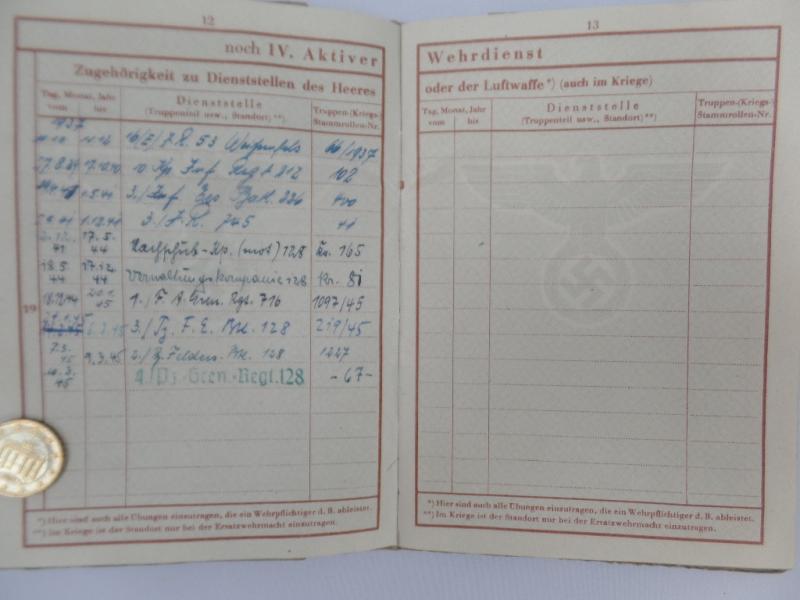 12
noch IV. Aktiver
Zugehörigkeit zu Dienststellen des Heeres
Tag, Monat, Jahr
vom bis
Dienststelle
(Truppenteil usw., Standort) **)
Truppen-(Kriegs-)
Stammrollen-Nr.
1937
I.R. 53 66/1937
27.8.39 17.12.40 10. Kp. Inf. Regt 212 102
1.5.41 3./Inf. Ers. Batl. 226 400
1.12.41 3./I.R. 745 41
2.12. 41 17.5. 44 Nachschub-Kp. (mot) 128 165
18.5. 44 17.12. 44 Verwaltungskompanie 128 81
18.12.44 20.1. 45 1./F. A. Gren. Rgt. 716 1097/45
21.1.45 6.3.45 3./Pz. F. E. Btl. 128 219/45
7.3. 45 9.3.45 2./Pz. Felders. Btl. 128 1227
10.3. 45 4./Pz.-Gren.-Regt.128 -67-
19
*) Hier sind auch alle Übungen einzutragen, die ein Wehrpflichtiger d. B. ableistet.
**) Im Kriege ist der Standort nur bei der Ersatzwehrmacht einzutragen.
13
Wehrdienst
oder der Luftwaffe*) (auch im Kriege)
Tag, Monat, Jahr
vom bis
Dienststelle
(Truppenteil usw., Standort) **)
Truppen-(Kriegs-)
Stammrollen-Nr.
*) Hier sind auch alle Übungen einzutragen, die ein Wehrpflichtiger d. B. ableistet.
**) Im Kriege ist der Standort nur bei der Ersatzwehrmacht einzutragen.